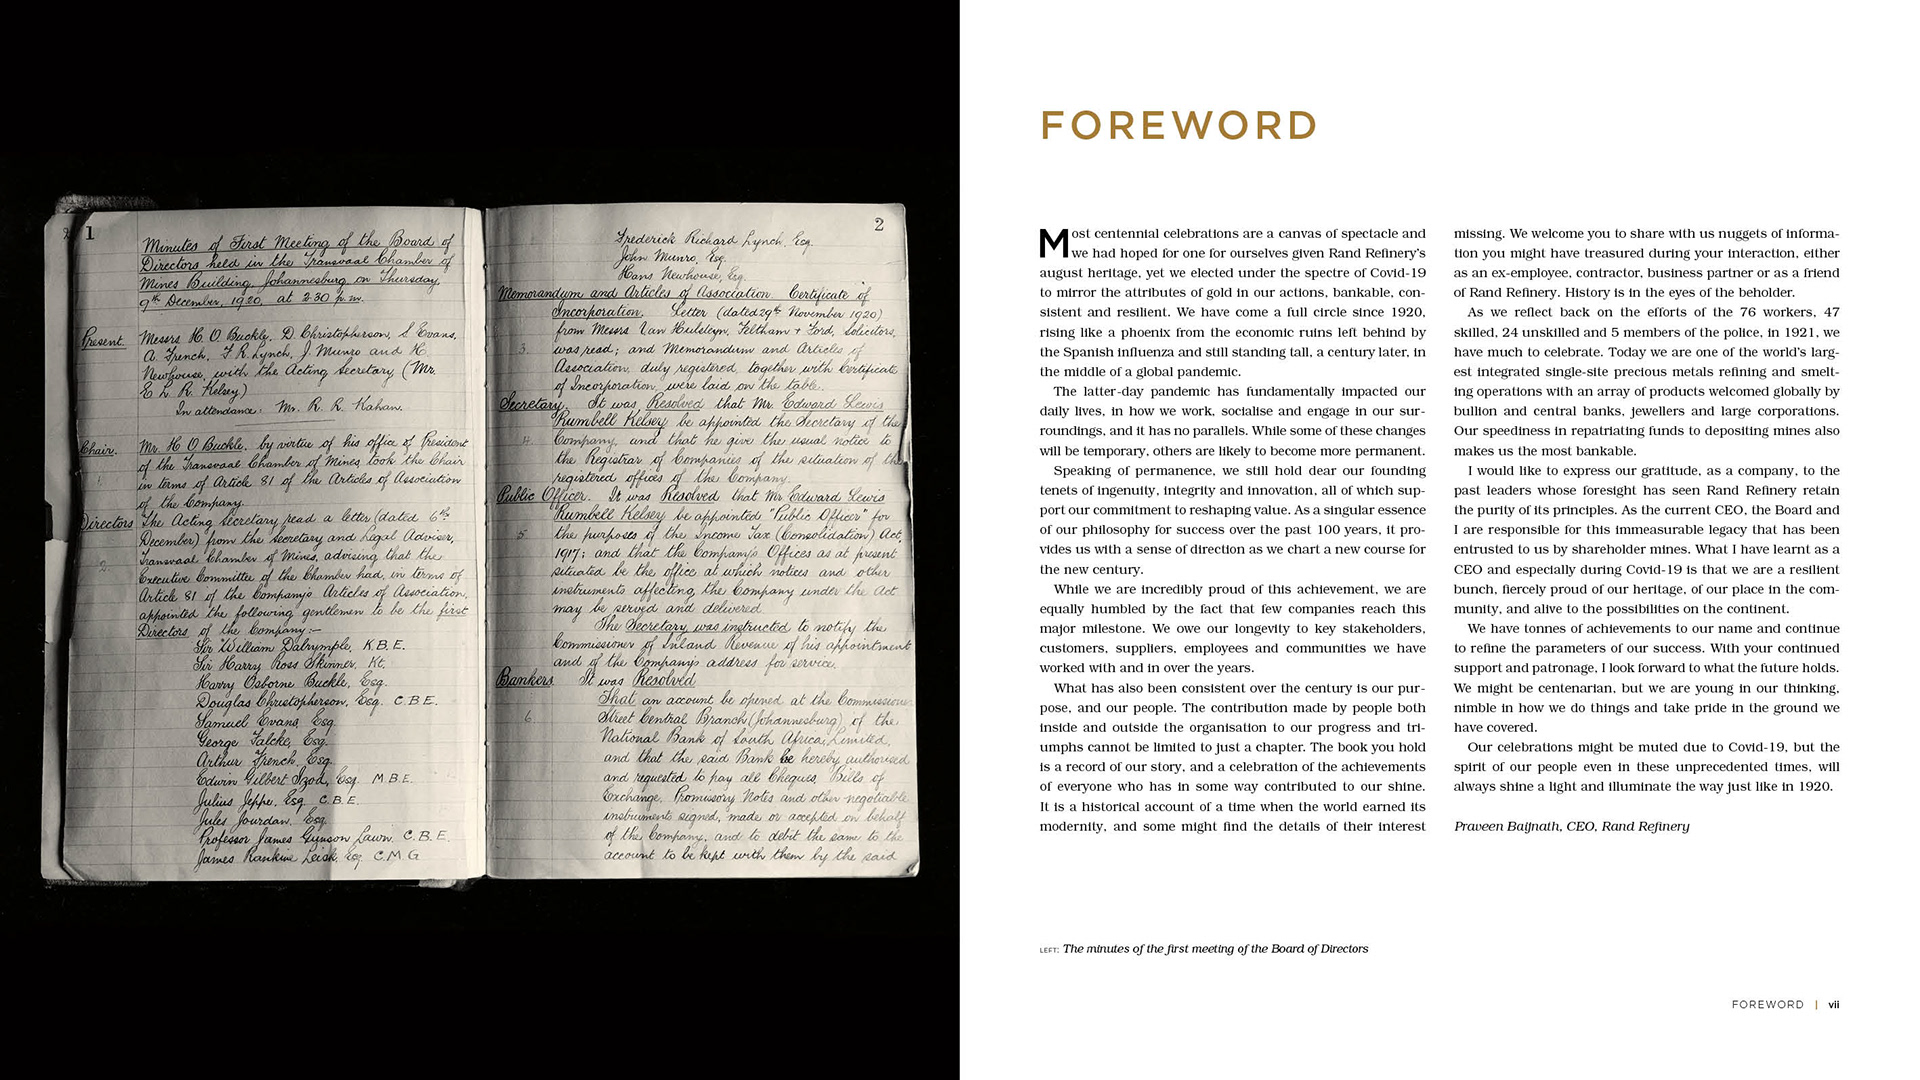 1
Minutes of First Meeting of the Board of
Directors held in the Transvaal Chamber of
Mines Building, Johannesburg on Thursday,
9th December, 1920, at 2.30 p.m.
Present. Messrs H. O. Buckle, D. Christopherson, S. Evans,
A. French, F. R. Lynch, J. Munro and H.
Newhouse, with the Acting Secretary (Mr.
E. L. R. Kelsey)
In attendance: Mr. R. R. Kahan.
Chair. Mr. H. O. Buckle, by virtue of his office of President
1. of the Transvaal Chamber of Mines, took the Chair
in terms of Article 81 of the Articles of Association
of the Company.
Directors The Acting Secretary read a letter (dated 6th
December) from the Secretary and Legal Adviser,
2. Transvaal Chamber of Mines, advising that the
Executive Committee of the Chamber had, in terms of
Article 81 of the Company's Articles of Association,
appointed the following gentlemen to be the first
Directors of the Company:-
Sir William Dalrymple, K.B.E.
Sir Harry Ross Skinner, Kt.
Harry Osborne Buckle, Esq.
Douglas Christopherson, Esq. C.B.E.
Samuel Evans, Esq.
George Falcke, Esq.
Arthur French, Esq.
Edwin Gilbert Izod, Esq. M.B.E.
Julius Jeppe, Esq. C.B.E.
Jules Jourdan, Esq.
Professor James Gunson Lawn, C.B.E.
James Rankine Leisk, Esq. C.M.G
2
Frederick Richard Lynch, Esq.
John Munro, Esq.
Hans Newhouse, Esq.
Memorandum and Articles of Association. Certificate of
Incorporation. Letter (dated 29th November 1920)
from Messrs Van Hulsteyn, Feltham & Ford, Solicitors,
3. was read; and Memorandum and Articles of
Association, duly registered, together with Certificate
of Incorporation, were laid on the table.
Secretary. It was Resolved that Mr. Edward Lewis
Rumbell Kelsey be appointed the Secretary of the
4. Company, and that he give the usual notice to
the Registrar of Companies of the situation of the
registered offices of the Company.
Public Officer. It was Resolved that Mr Edward Lewis
Rumbell Kelsey be appointed "Public Officer" for
5. the purposes of the Income Tax (Consolidation) Act,
1917; and that the Company's Offices as at present
situated be the office at which notices and other
instruments affecting the Company under the Act
may be served and delivered.
The Secretary was instructed to notify the
Commissioner of Inland Revenue of his appointment
and of the Company's address for service.
Bankers. It was Resolved
That an account be opened at the Commissioner
6. Street Central Branch (Johannesburg) of the
National Bank of South Africa, Limited,
and that the said Bank be hereby authorised
and requested to pay all Cheques, Bills of
Exchange, Promissory Notes and other negotiable
instruments signed, made or accepted on behalf
of the Company, and to debit the same to the
account to be kept with them by the said
FOREWORD
Most centennial celebrations are a canvas of spectacle and
we had hoped for one for ourselves given Rand Refinery's
august heritage, yet we elected under the spectre of Covid-19
to mirror the attributes of gold in our actions, bankable, con-
sistent and resilient. We have come a full circle since 1920,
rising like a phoenix from the economic ruins left behind by
the Spanish influenza and still standing tall, a century later, in
the middle of a global pandemic.
The latter-day pandemic has fundamentally impacted our
daily lives, in how we work, socialise and engage in our sur-
roundings, and it has no parallels. While some of these changes
will be temporary, others are likely to become more permanent.
Speaking of permanence, we still hold dear our founding
tenets of ingenuity, integrity and innovation, all of which sup-
port our commitment to reshaping value. As a singular essence
of our philosophy for success over the past 100 years, it pro-
vides us with a sense of direction as we chart a new course for
the new century.
While we are incredibly proud of this achievement, we are
equally humbled by the fact that few companies reach this
major milestone. We owe our longevity to key stakeholders,
customers, suppliers, employees and communities we have
worked with and in over the years.
What has also been consistent over the century is our pur-
pose, and our people. The contribution made by people both
inside and outside the organisation to our progress and tri-
umphs cannot be limited to just a chapter. The book you hold
is a record of our story, and a celebration of the achievements
of everyone who has in some way contributed to our shine.
It is a historical account of a time when the world earned its
modernity, and some might find the details of their interest
missing. We welcome you to share with us nuggets of informa-
tion you might have treasured during your interaction, either
as an ex-employee, contractor, business partner or as a friend
of Rand Refinery. History is in the eyes of the beholder.
As we reflect back on the efforts of the 76 workers, 47
skilled, 24 unskilled and 5 members of the police, in 1921, we
have much to celebrate. Today we are one of the world's larg-
est integrated single-site precious metals refining and smelt-
ing operations with an array of products welcomed globally by
bullion and central banks, jewellers and large corporations.
Our speediness in repatriating funds to depositing mines also
makes us the most bankable.
I would like to express our gratitude, as a company, to the
past leaders whose foresight has seen Rand Refinery retain
the purity of its principles. As the current CEO, the Board and
I are responsible for this immeasurable legacy that has been
entrusted to us by shareholder mines. What I have learnt as a
CEO and especially during Covid-19 is that we are a resilient
bunch, fiercely proud of our heritage, of our place in the com-
munity, and alive to the possibilities on the continent.
We have tonnes of achievements to our name and continue
to refine the parameters of our success. With your continued
support and patronage, I look forward to what the future holds.
We might be centenarian, but we are young in our thinking,
nimble in how we do things and take pride in the ground we
have covered.
Our celebrations might be muted due to Covid-19, but the
spirit of our people even in these unprecedented times, will
always shine a light and illuminate the way just like in 1920.
Praveen Baijnath, CEO, Rand Refinery
LEFT: The minutes of the first meeting of the Board of Directors
FOREWORD | vii